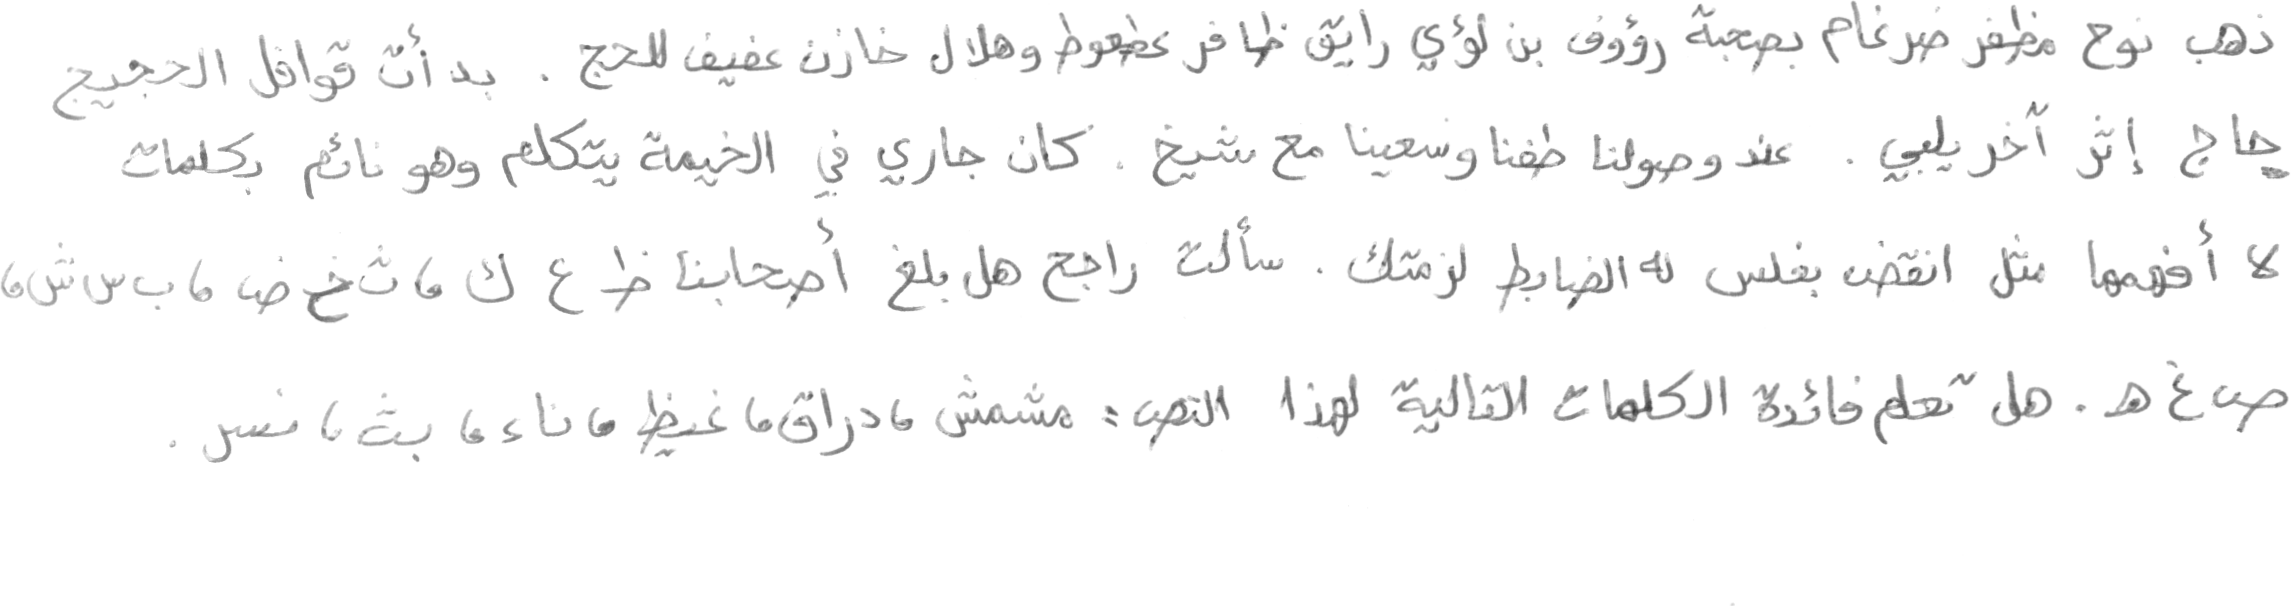 ذهب نوح مظفر ضرغام بصحبة رؤوف بن لؤي رايق ظافر عطعوط وهلال خازن عفيف للحج . بدأت قوافل الحجيج
حاج إثر آخر يلبي . عند وصولنا طفنا وسعينا مع شيخ . كان جاري في الخيمة يتكلم وهو نائم بكلمات
لا أفهمها مثل انقض بغلس له الضابط لزمتك . سألت راجح هل بلغ أصحابنا ظ ع ك ، ث خ ض ، ب س ش ،
ص غ ه . هل تعلم فائدة الكلمات التالية لهذا النص : مشمش ، دراق ، غيظ ، ناء ، بث ، نسر .